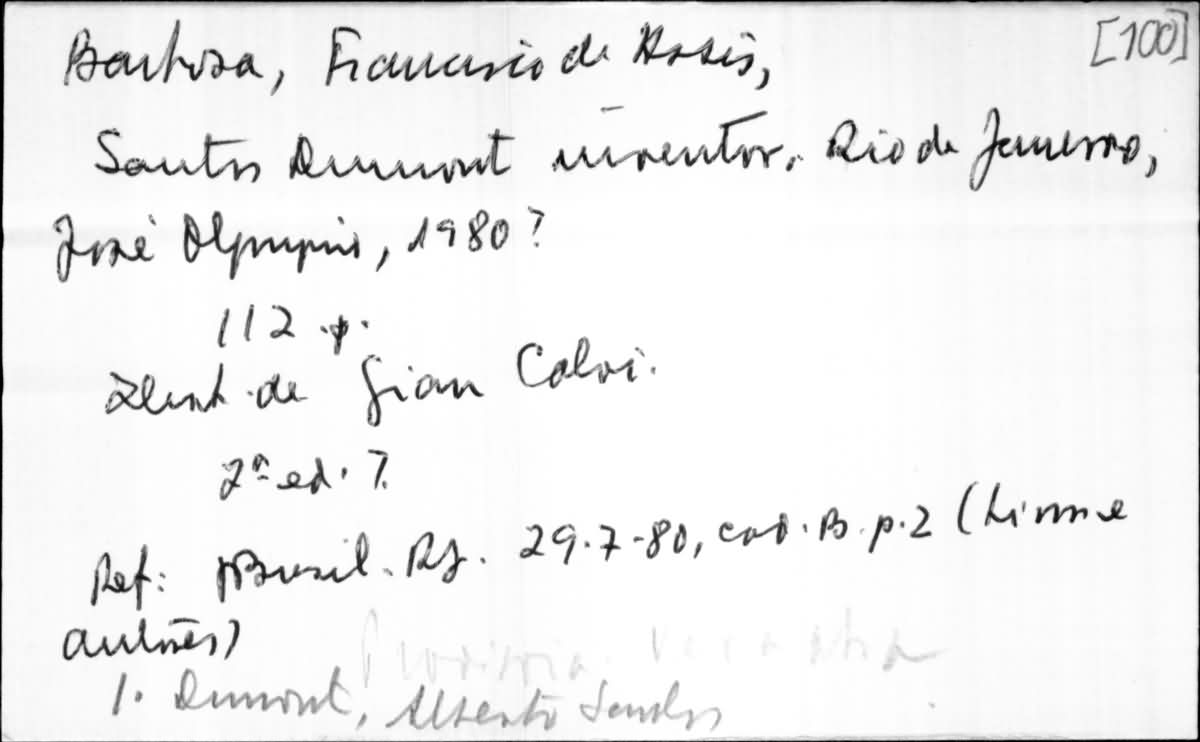 [100]
Barbosa, Francisco de Assis,
Santos Dumont inventor. Rio de Janeiro,
José Olympio, 1980?
112 p.
Ilust. de Gian Calvi.
2ª ed. ?
Ref: JBrasil. RJ. 29.7.80, cad. B. p.2 (Livros e
autores)
Provisória.
1. Dumont, Alberto Santos